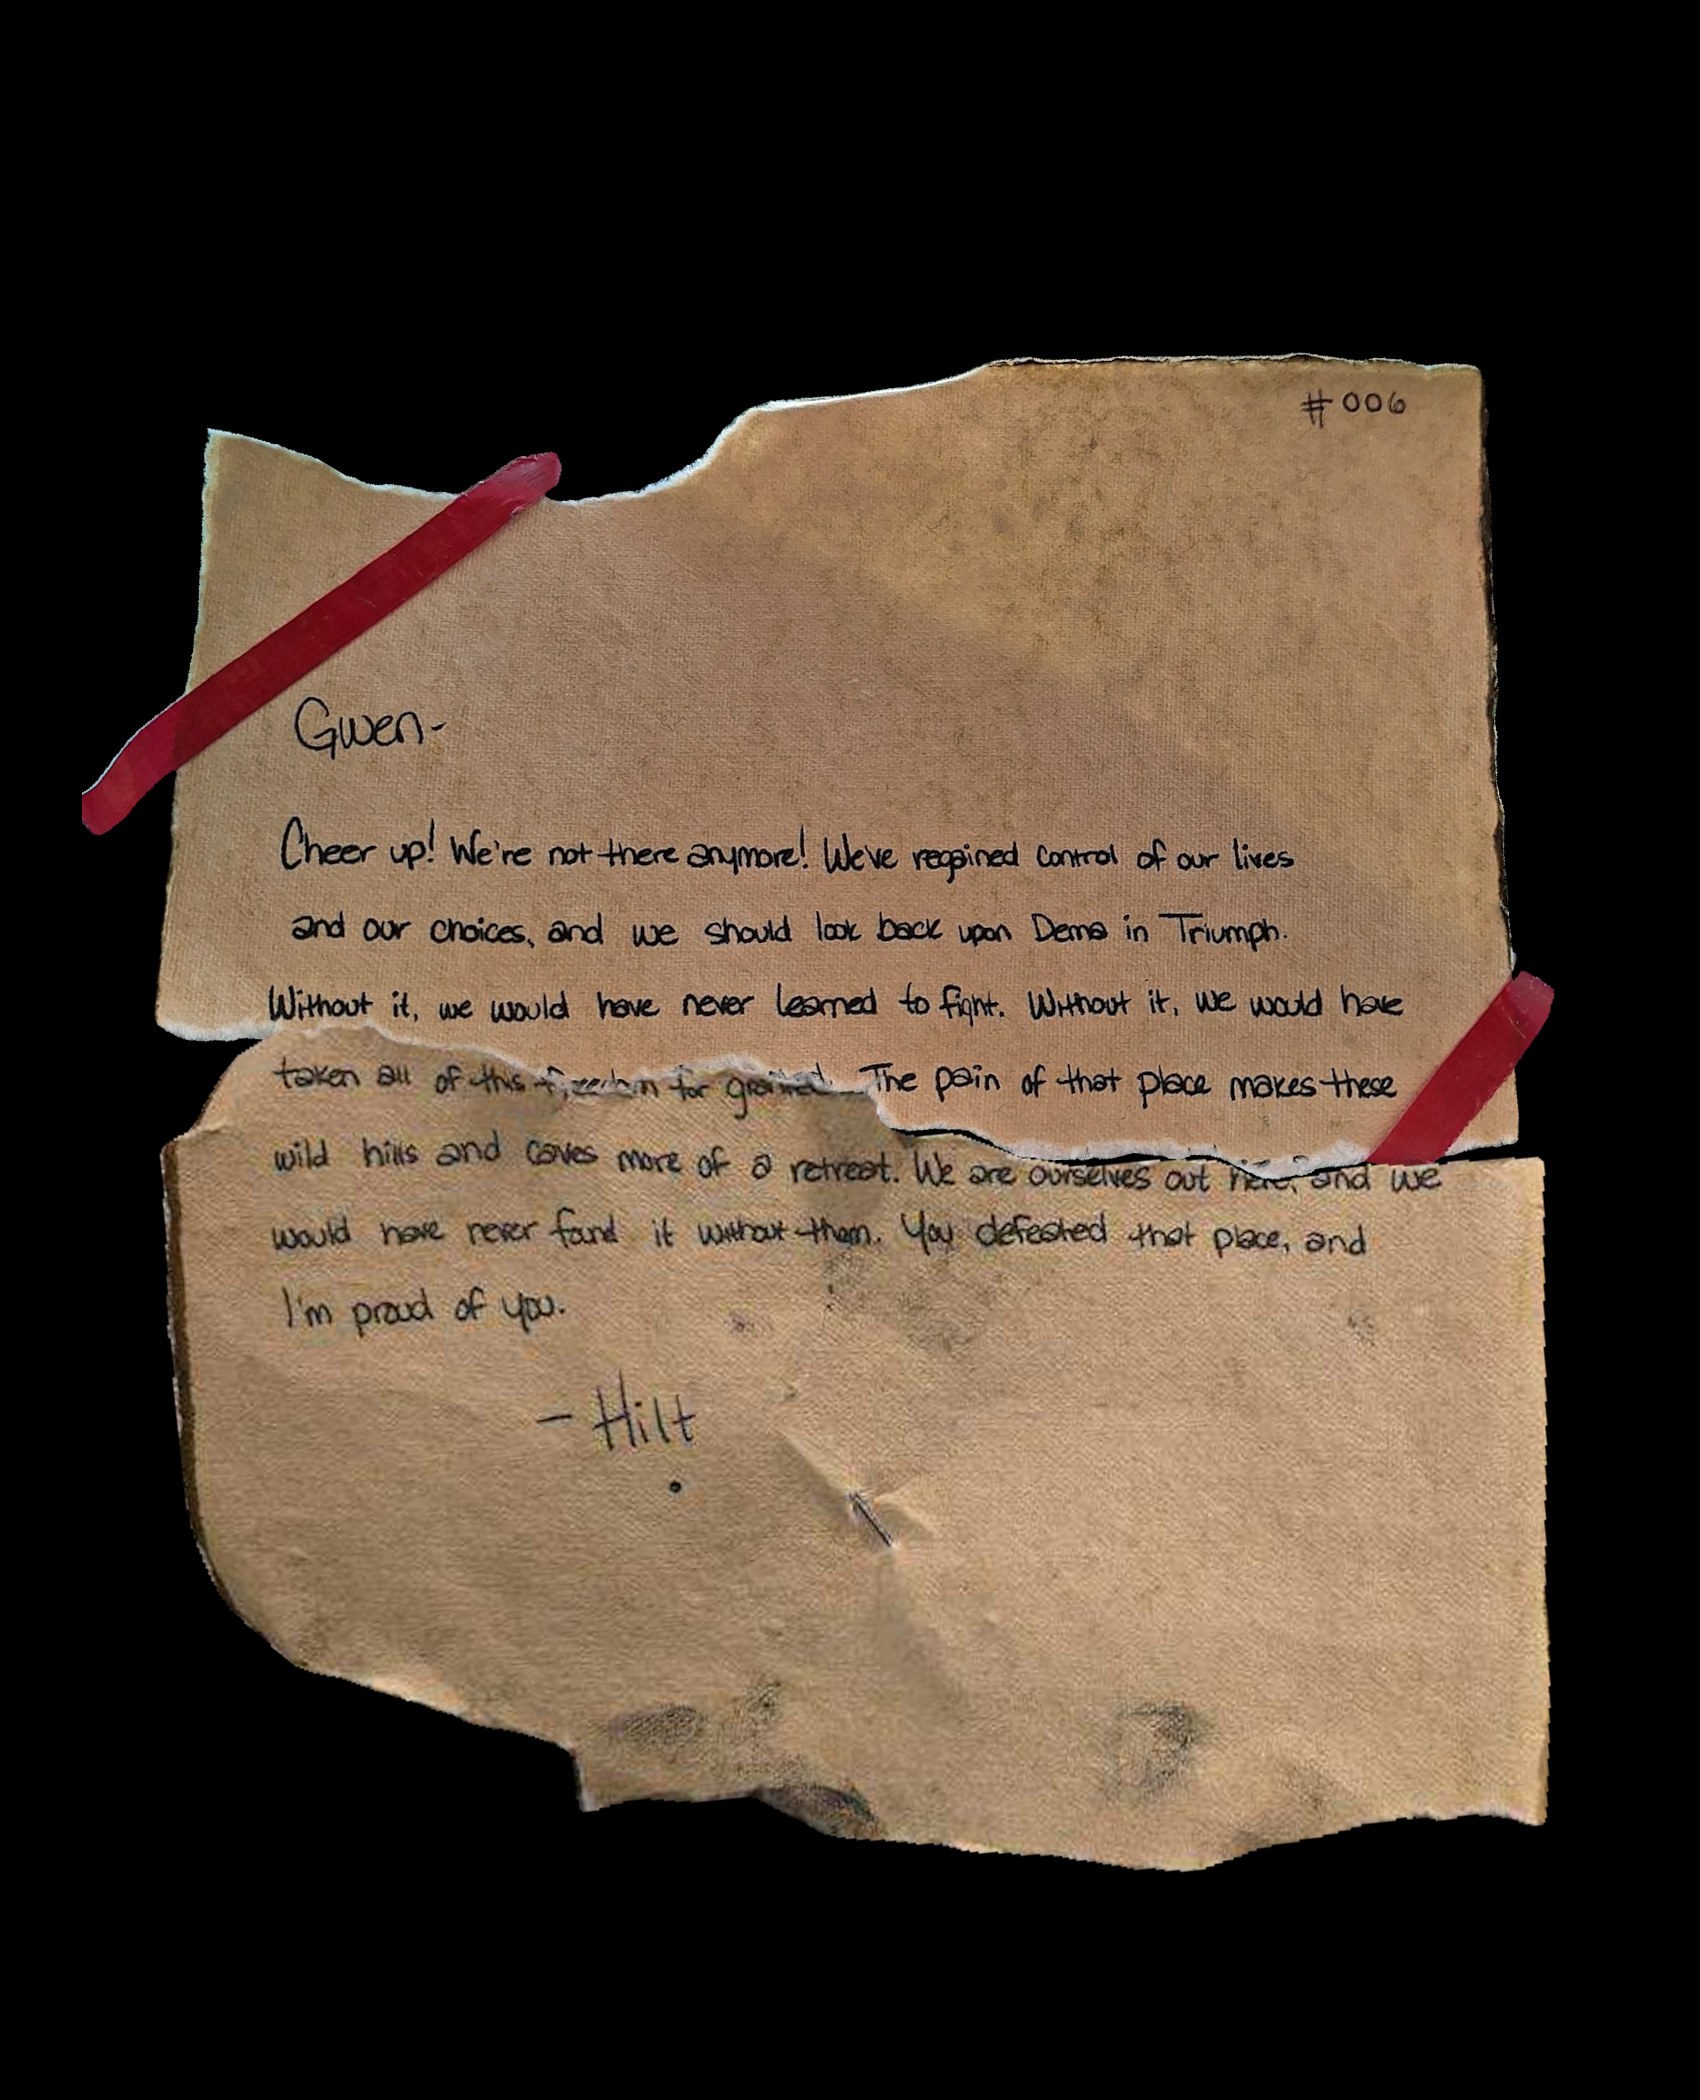 #006
Gwen-
Cheer up! We're not there anymore! We've regained control of our lives
and our choices, and we should look back upon Dema in Triumph.
Without it, we would have never learned to fight. Without it, we would have
taken all of this freedom for granted. The pain of that place makes these
wild hills and caves more of a retreat. We are ourselves out here, and we
would have never found it without them. You defeated that place, and
I'm proud of you.
- Hilt